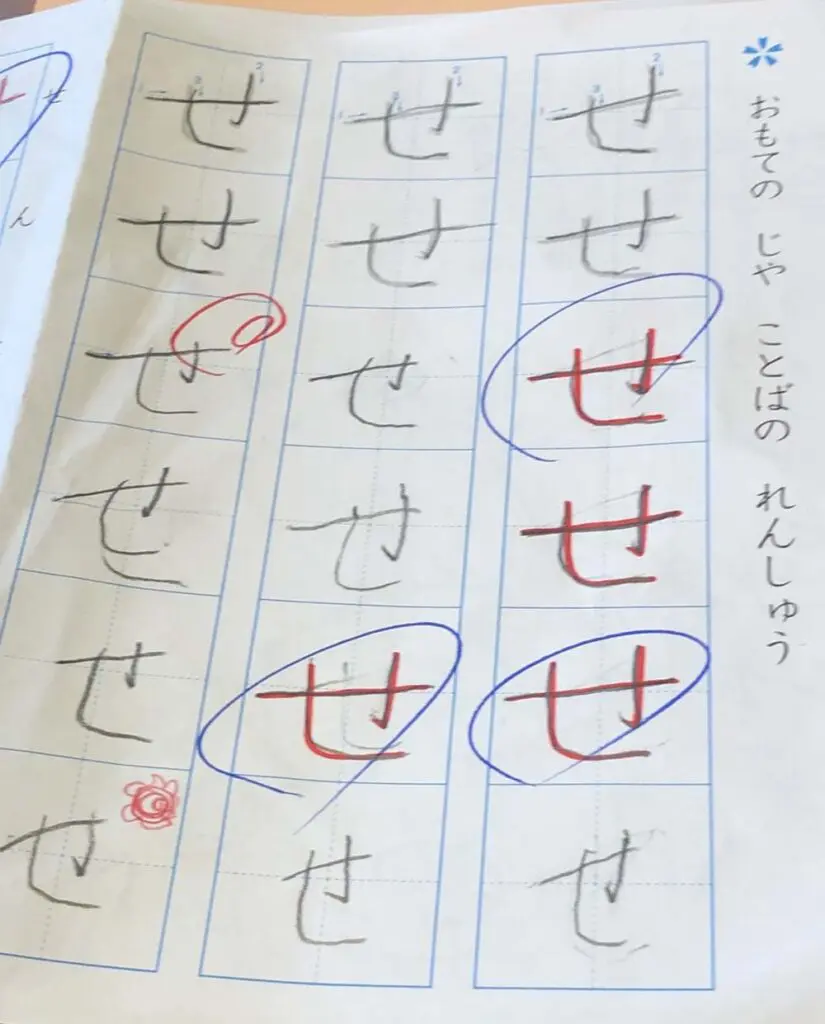 おもての じや ことばの れんしゅう
せせせせせせ
せせせせせせ
せせせせせせ
ん